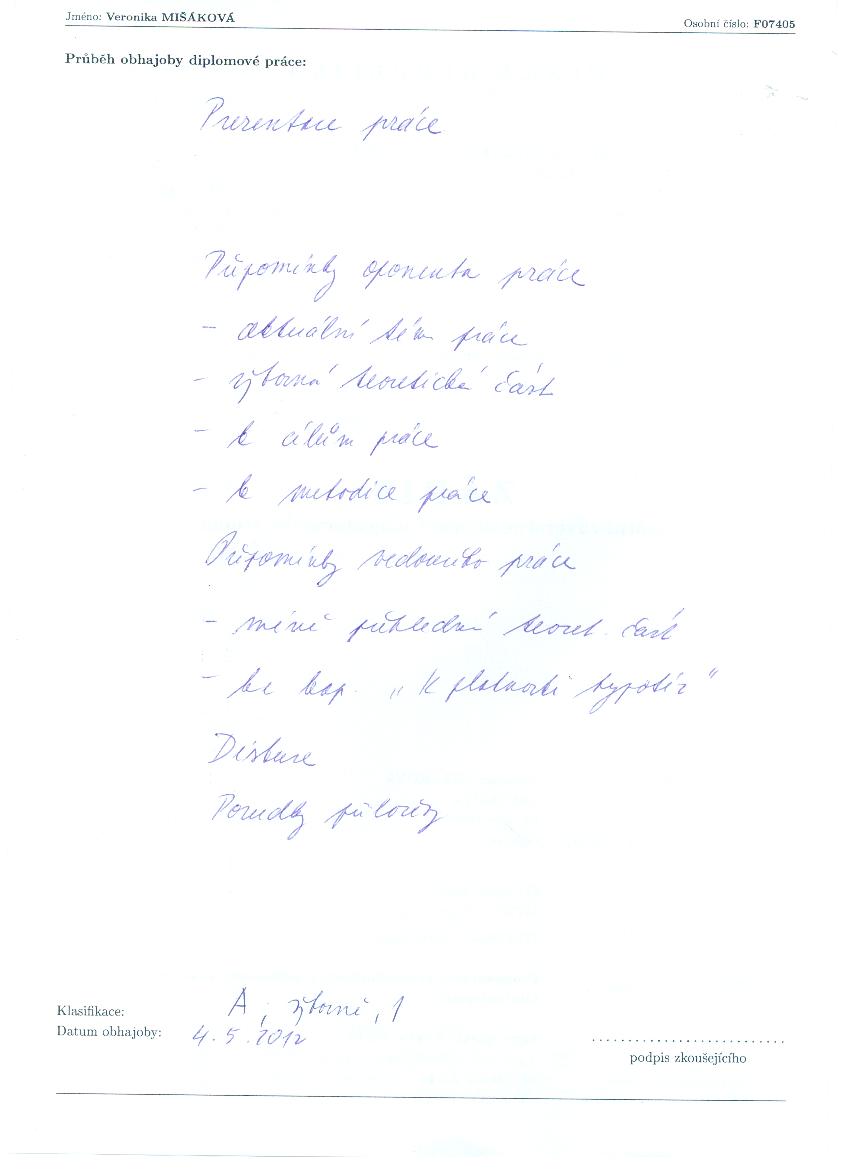 Jméno: Veronika MIŠÁKOVÁ
Osobní číslo: F07405
Průběh obhajoby diplomové práce:
Prezentace práce
Připomínky oponenta práce
- aktuální tém práce
- výborná teoretická část
- k cílům práce
- k metodice práce
Připomínky vedoucího práce
- méně přehledná teoret. část
- ke kap. „K platnosti hypotéz"
Diskuse
Posudky přiloženy
Klasifikace: A, výborně, 1
Datum obhajoby: 4. 5. 2012
podpis zkoušejícího